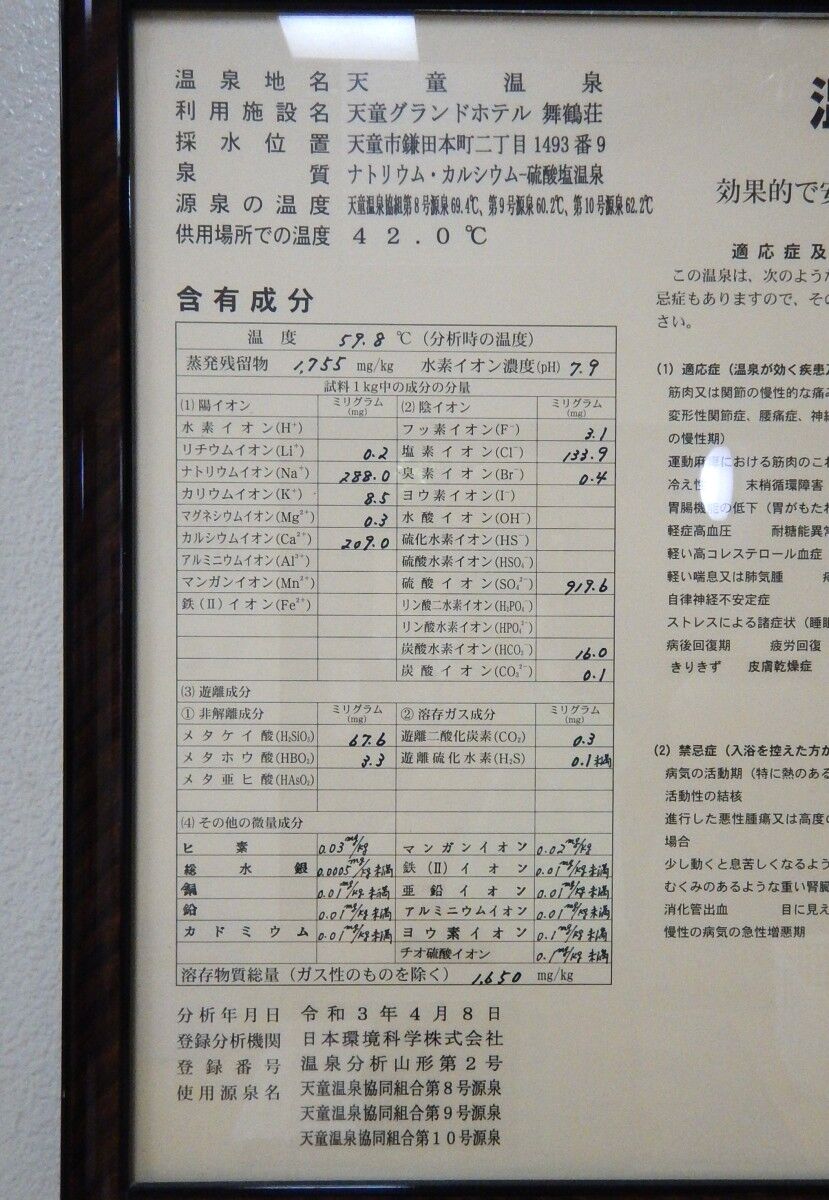 温泉地名 天童温泉
利用施設名 天童グランドホテル 舞鶴荘
採水位置 天童市鎌田本町二丁目1493番9
泉質 ナトリウム・カルシウム-硫酸塩温泉
源泉の温度 天童温泉協組第8号源泉69.4℃、第9号源泉60.2℃、第10号源泉62.2℃
供用場所での温度 42.0℃
含有成分
温度 59.8 ℃(分析時の温度)
蒸発残留物 1,755 mg/kg 水素イオン濃度(pH) 7.9
試料1kg中の成分の分量
(1)陽イオン ミリグラム(mg) (2)陰イオン ミリグラム(mg)
水素イオン(H⁺) フッ素イオン(F⁻) 3.1
リチウムイオン(Li⁺) 0.2 塩素イオン(Cl⁻) 133.9
ナトリウムイオン(Na⁺) 288.0 臭素イオン(Br⁻) 0.4
カリウムイオン(K⁺) 8.5 ヨウ素イオン(I⁻)
マグネシウムイオン(Mg²⁺) 0.3 水酸イオン(OH⁻)
カルシウムイオン(Ca²⁺) 209.0 硫化水素イオン(HS⁻)
アルミニウムイオン(Al³⁺) 硫酸水素イオン(HSO₄⁻)
マンガンイオン(Mn²⁺) 硫酸イオン(SO₄²⁻) 919.6
鉄(II)イオン(Fe²⁺) リン酸二水素イオン(H₂PO₄⁻)
リン酸水素イオン(HPO₄²⁻)
炭酸水素イオン(HCO₃⁻) 16.0
炭酸イオン(CO₃²⁻) 0.1
(3)遊離成分
①非解離成分 ミリグラム(mg) ②溶存ガス成分 ミリグラム(mg)
メタケイ酸(H₂SiO₃) 67.6 遊離二酸化炭素(CO₂) 0.3
メタホウ酸(HBO₂) 3.3 遊離硫化水素(H₂S) 0.1未満
メタ亜ヒ酸(HAsO₂)
(4)その他の微量成分
ヒ素 0.03mg/kg マンガンイオン 0.02mg/kg
総水銀 0.0005mg/kg未満 鉄(II)イオン 0.01mg/kg未満
銅 0.01mg/kg未満 亜鉛イオン 0.01mg/kg未満
鉛 0.01mg/kg未満 アルミニウムイオン 0.01mg/kg未満
カドミウム 0.01mg/kg未満 ヨウ素イオン 0.1mg/kg未満
チオ硫酸イオン 0.1mg/kg未満
溶存物質総量(ガス性のものを除く) 1,650 mg/kg
分析年月日 令和3年4月8日
登録分析機関 日本環境科学株式会社
登録番号 温泉分析山形第2号
使用源泉名 天童温泉協同組合第8号源泉
天童温泉協同組合第9号源泉
天童温泉協同組合第10号源泉
温
効果的で安
適応症及
この温泉は、次のような
忌症もありますので、その
さい。
(1) 適応症(温泉が効く疾患
筋肉又は関節の慢性的な痛み
変形性関節症、腰痛症、神経
の慢性期)
運動麻痺における筋肉のこわ
冷え性 末梢循環障害
胃腸機能の低下(胃がもたれ
軽症高血圧 耐糖能異常
軽い高コレステロール血症
軽い喘息又は肺気腫
自律神経不安定症
ストレスによる諸症状(睡眠
病後回復期 疲労回復
きりきず 皮膚乾燥症
(2) 禁忌症(入浴を控えた方が
病気の活動期(特に熱のある
活動性の結核
進行した悪性腫瘍又は高度の
場合
少し動くと息苦しくなるよう
むくみのあるような重い腎臓
消化管出血 目に見え
慢性の病気の急性増悪期